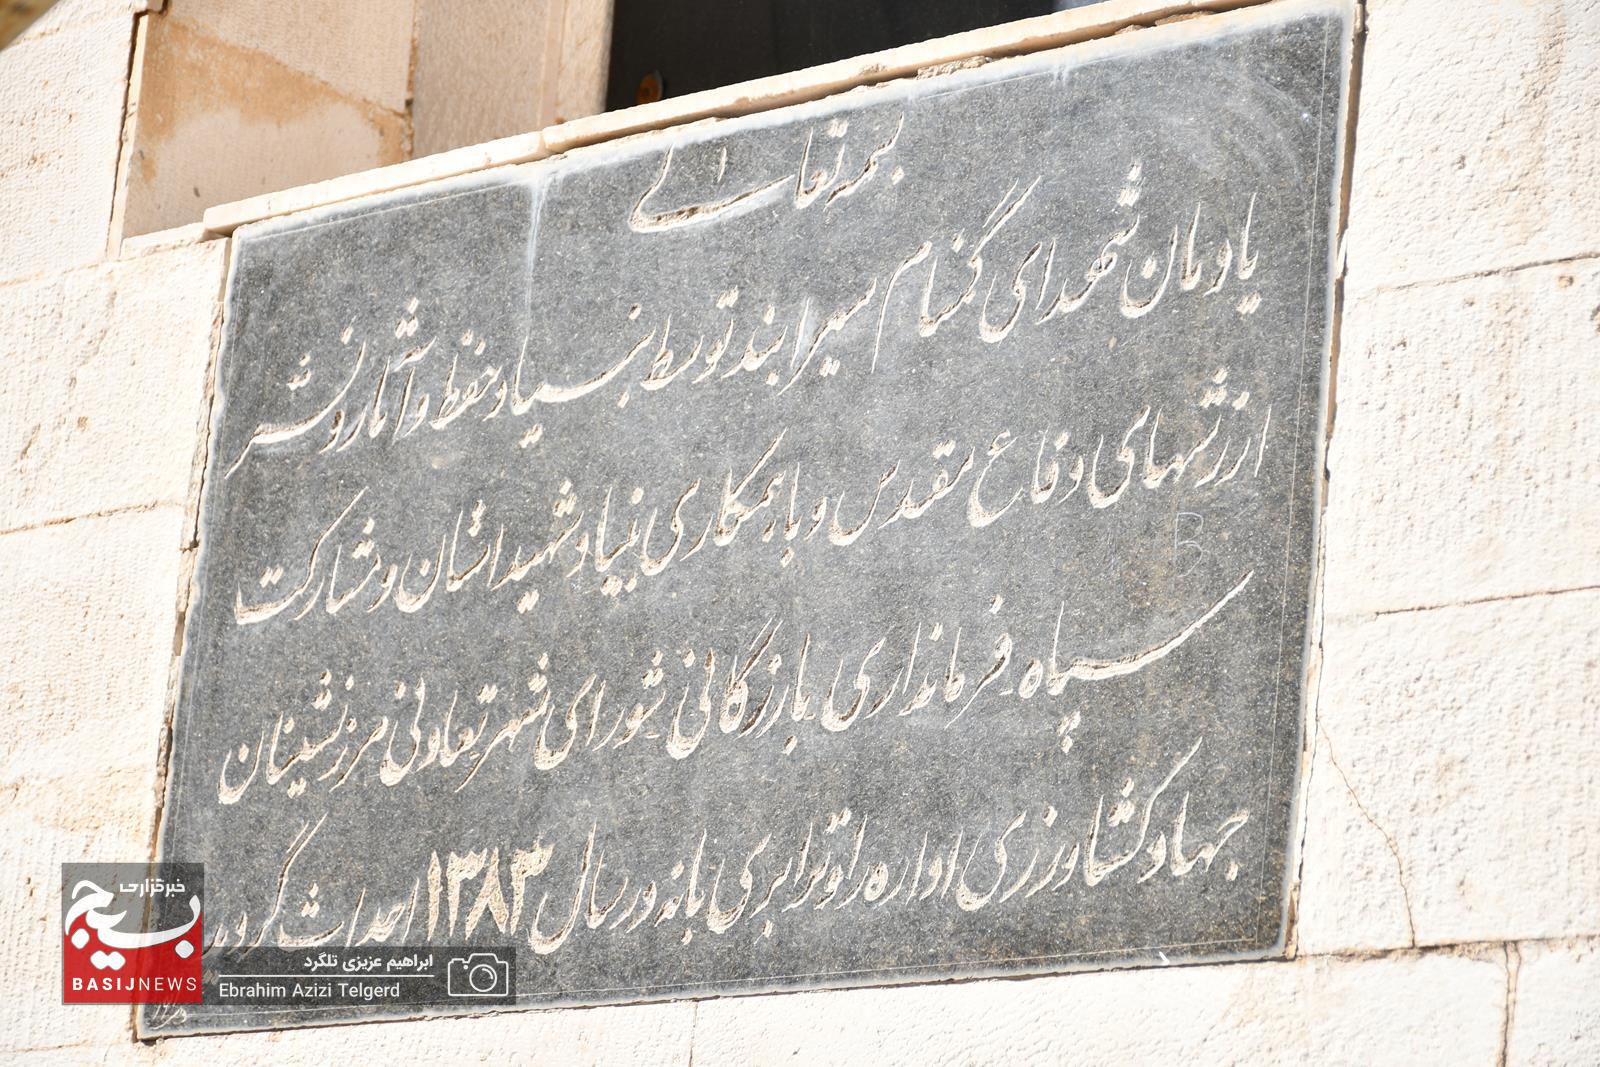 بسمه تعالی
یادمان شهدای گمنام سیرانبند توسط بنیاد حفظ و آثار و نشر
ارزشهای دفاع مقدس و با همکاری بنیاد شهید استان و مشارکت
سپاه فرمانداری بازرگانی شورای شهر تعاونی مرزنشینان
جهاد کشاورزی اداره راه و ترابری بانه در سال ۱۳۸۳ احداث گردید
خبرگزاری
بسیج
BASIJNEWS
ابراهیم عزیزی تلگرد
Ebrahim Azizi Telgerd